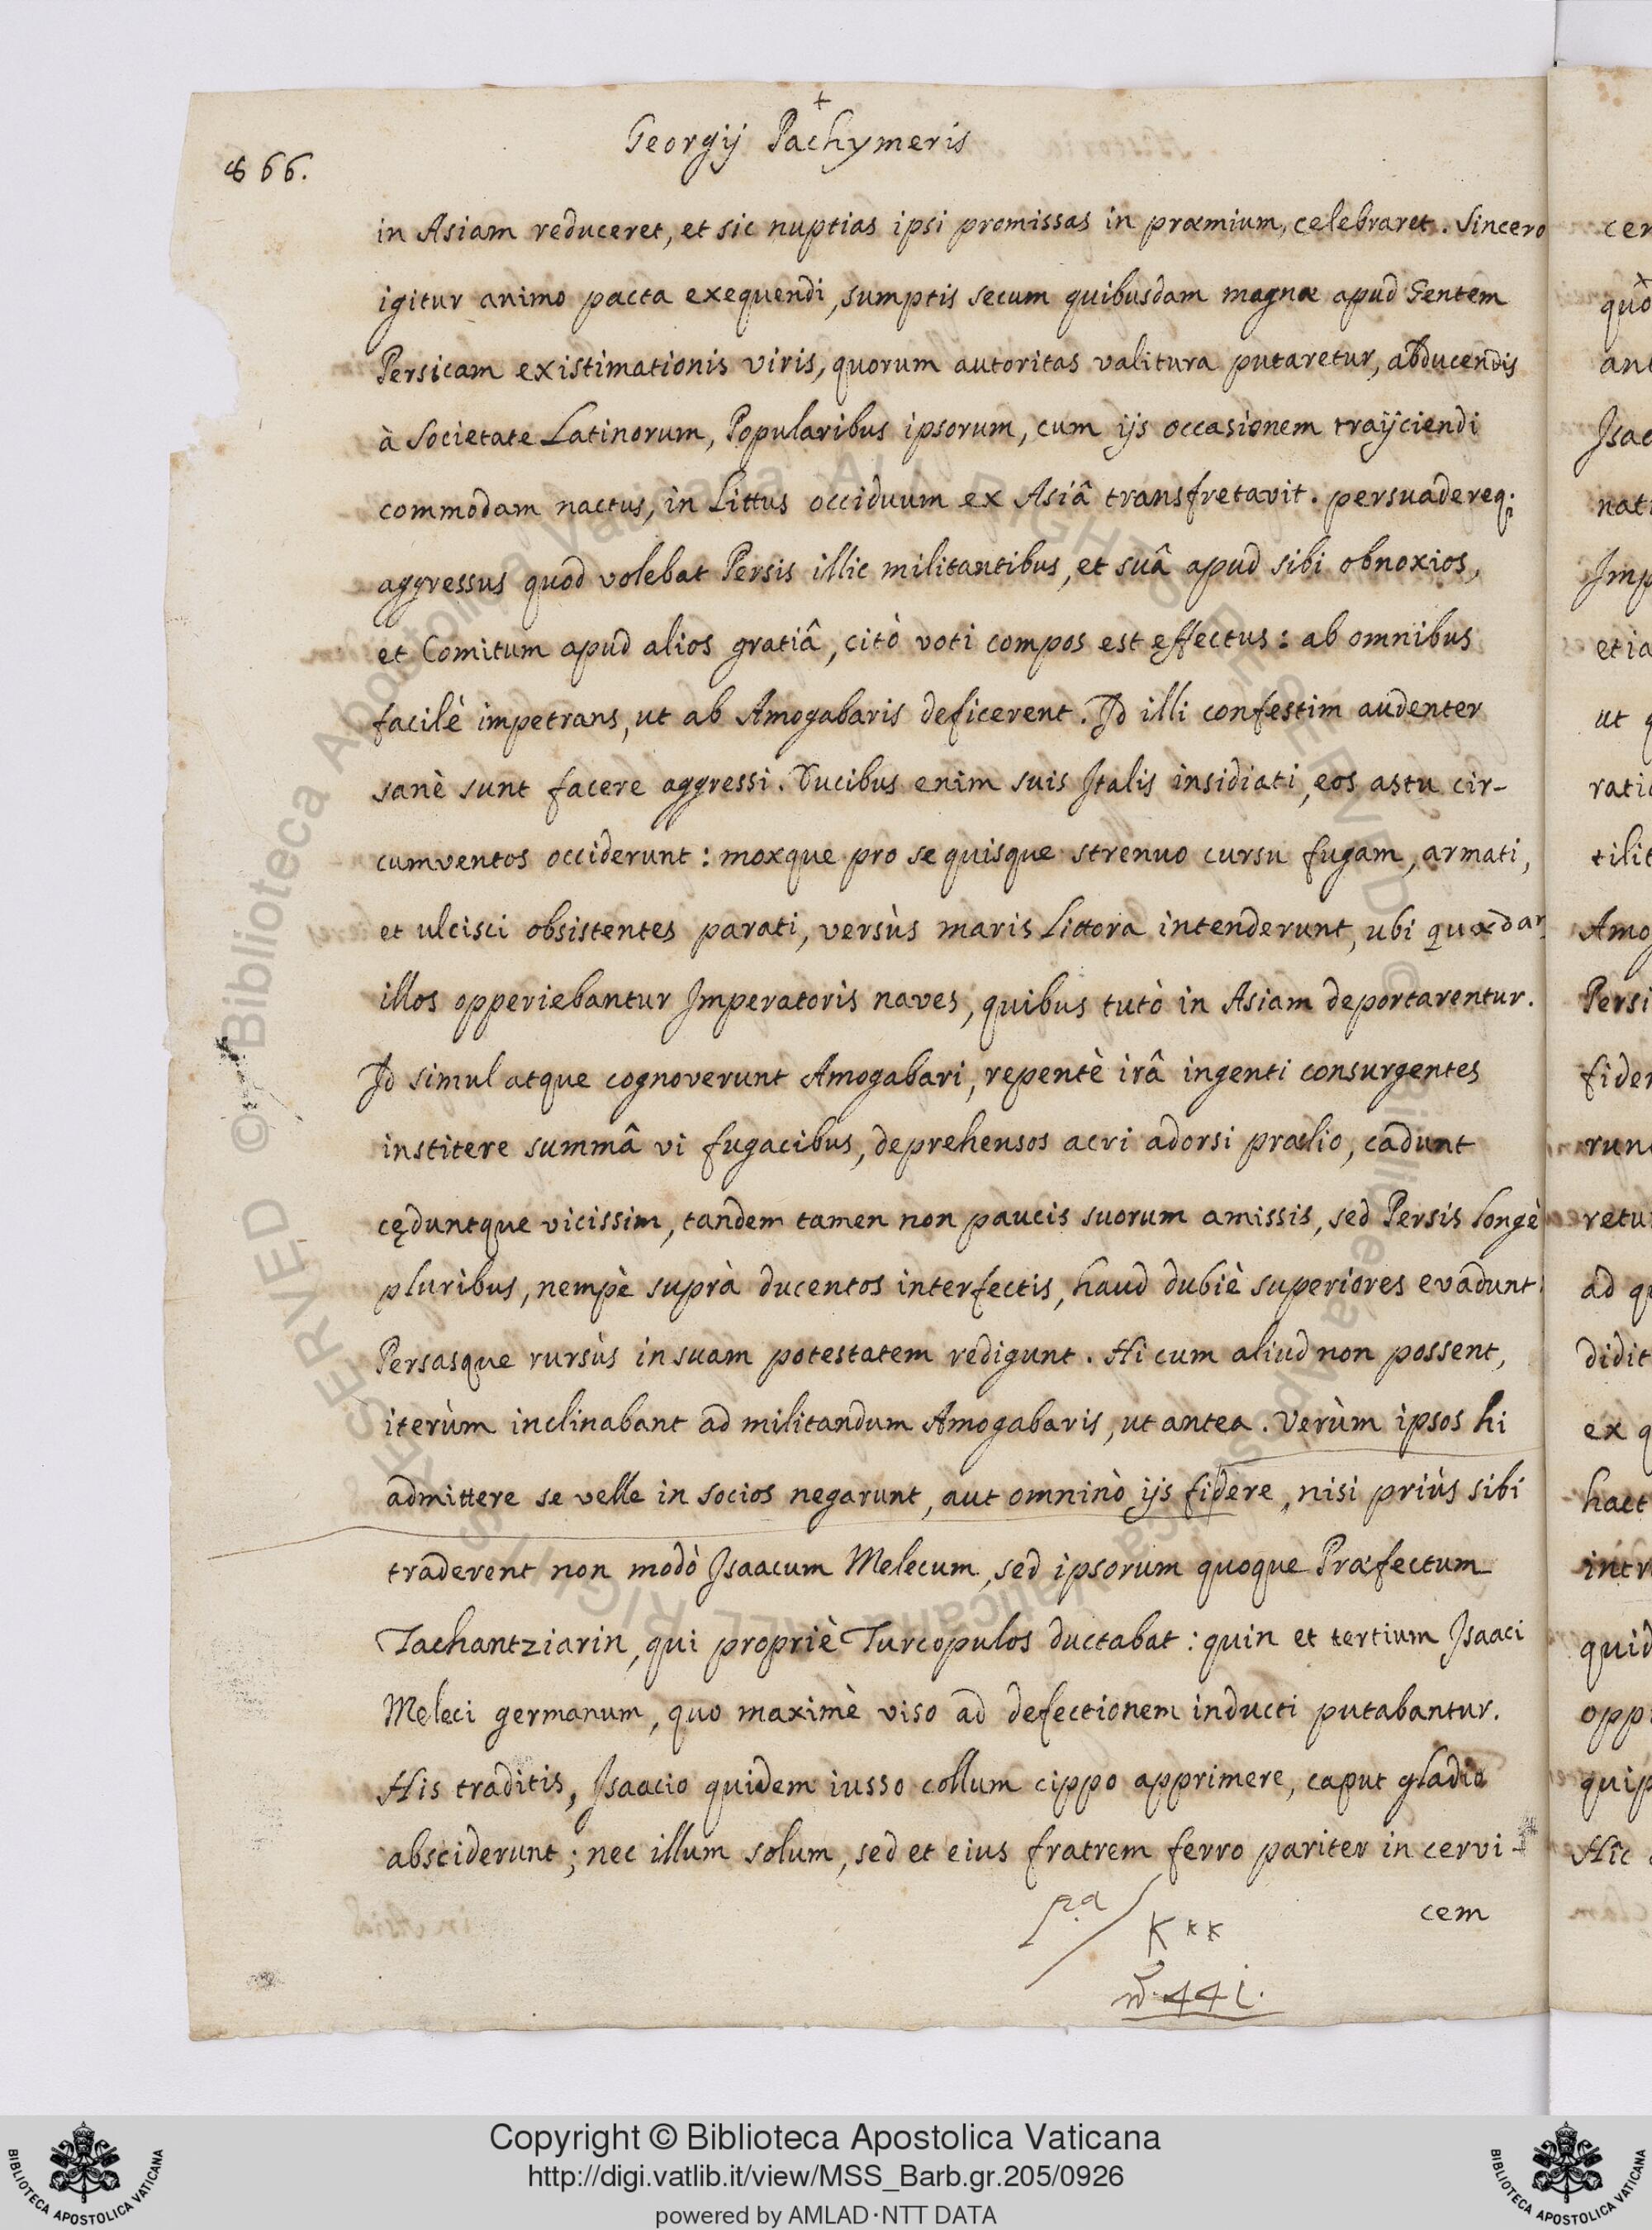 +
Georgij Pachymeris
866.
in Asiam reduceret, et sic nuptias ipsi promissas in præmium, celebraret. Sincero
igitur animo pacta exequendi, sumptis secum quibusdam magnæ apud Gentem
Persicam existimationis viris, quorum autoritas valitura putaretur, abducendis
à Societate Latinorum, Popularibus ipsorum, cum ijs occasionem traijciendi
commodam nactus, in Littus occiduum ex Asiâ transfretavit. persuadereq;
aggressus quod volebat Persis illic militantibus, et suâ apud sibi obnoxios,
et Comitum apud alios gratiâ, citò voti compos est effectus: ab omnibus
facilè impetrans, ut ab Amogabaris deficerent. Id illi confestim audenter
sanè sunt facere aggressi. Ducibus enim suis Italis insidiati, eos astu cir-
cumventos occiderunt: moxque pro se quisque strenuo cursu fugam, armati,
et ulcisci obsistentes parati, versùs maris Littora intenderunt, ubi quædam
illos opperiebantur Imperatoris naves, quibus tutò in Asiam deportarentur.
Id simul atque cognoverunt Amogabari, repentè irâ ingenti consurgentes
institere summâ vi fugacibus, deprehensos acri adorsi prælio, cadunt
cęduntque vicissim, tandem tamen non paucis suorum amissis, sed Persis longè
pluribus, nempè suprà ducentos interfectis, haud dubiè superiores evadunt:
Persasque rursùs in suam potestatem redigunt. Hi cum aliud non possent,
iterùm inclinabant ad militandum Amogabaris, ut antea. Verùm ipsos hi
admittere se velle in socios negarunt, aut omninò ijs fidere, nisi priùs sibi
traderent non modò Isaacum Melecum, sed ipsorum quoque Præfectum
Tachantziarin, qui propriè Turcopulos ductabat: quin et tertium Isaaci
Meleci germanum, quo maximè viso ad defectionem inducti putabantur.
His traditis, Isaacio quidem iusso collum cippo apprimere, caput gladio
absciderunt; nec illum solum, sed et eius fratrem ferro pariter in cervi-
cem
K k k
441.
cer
quo
Isac
Imp
etia
ut q
ratio
tilit
Amog
Persi
fider
retu
ad qu
didit
ex q
hact
intr
quid
opp
quip
Hic
© Biblioteca Apostolica Vaticana ALL RIGHTS RESERVED © Biblioteca Apostolica Vaticana ALL RIGHTS RESERVED
Copyright © Biblioteca Apostolica Vaticana
http://digi.vatlib.it/view/MSS_Barb.gr.205/0926
powered by AMLAD·NTT DATA
BIBLIOTECA APOSTOLICA VATICANA
BIBLIOTECA APOSTOLICA VATICANA